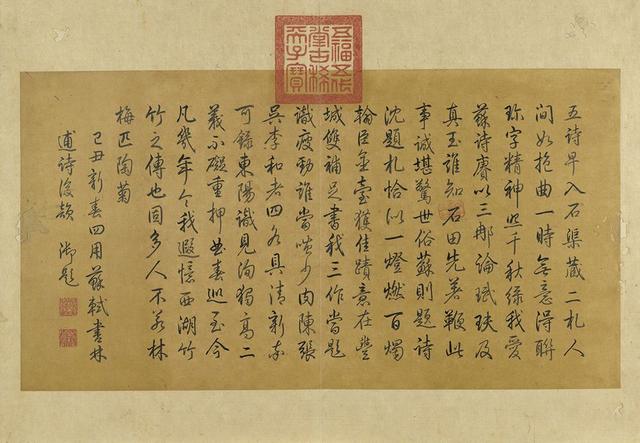 五福五代
堂古稀
天子寶
五詩早入石渠藏二札人
間如抱曲一時無意得聯
珎字精神照千秋緣我愛
蘇詩賡以三那論珷玞及
真玉誰知石田先著鞭此
事誠堪驚世俗蘇則題詩
沈題札恰似一燈燃百燭
翰臣臺獲佳蹟意在豐
城雙補足書我三作當題
識瘦勁誰當嗤少肉陳張
吳李和者四各具清新
可錄東陽識見洵獨高二
義不礙重押春巡至今
凡幾年令我遐憶西湖竹
竹之傳也因多人不若林
梅匹陶菊
己丑新春四用蘇軾書林
逋詩後韻 御題